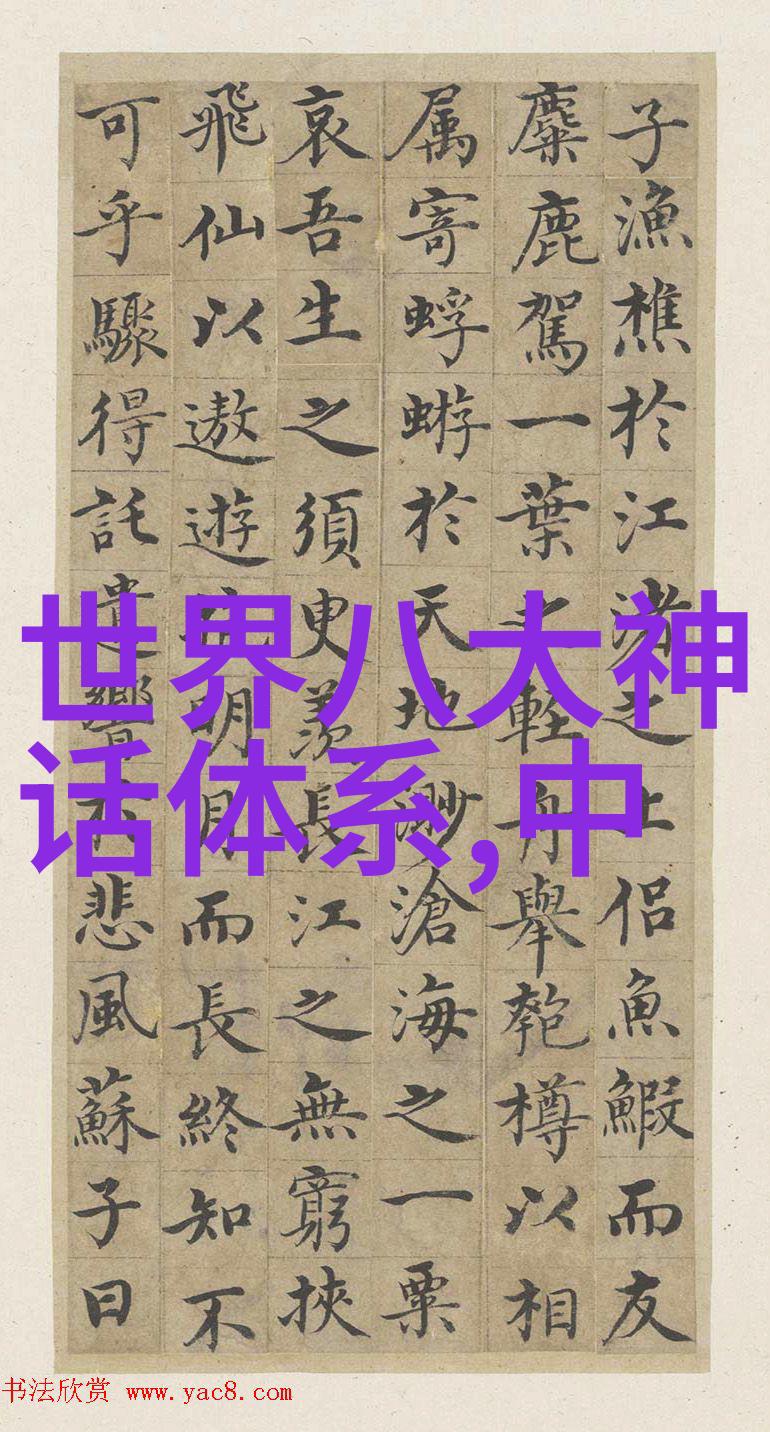 子漁樵於江渚之上侣魚鰕而友
麋鹿駕一葉之輕舟舉匏樽以相
属寄蜉蝣於天地渺滄海之一粟
哀吾生之須臾羨長江之無窮挾
飛仙以遨遊明月而長終知不
可乎驟得託遺響悲風蘇子曰
世界八大神
话体系,中
书法欣赏 www.yac8.com